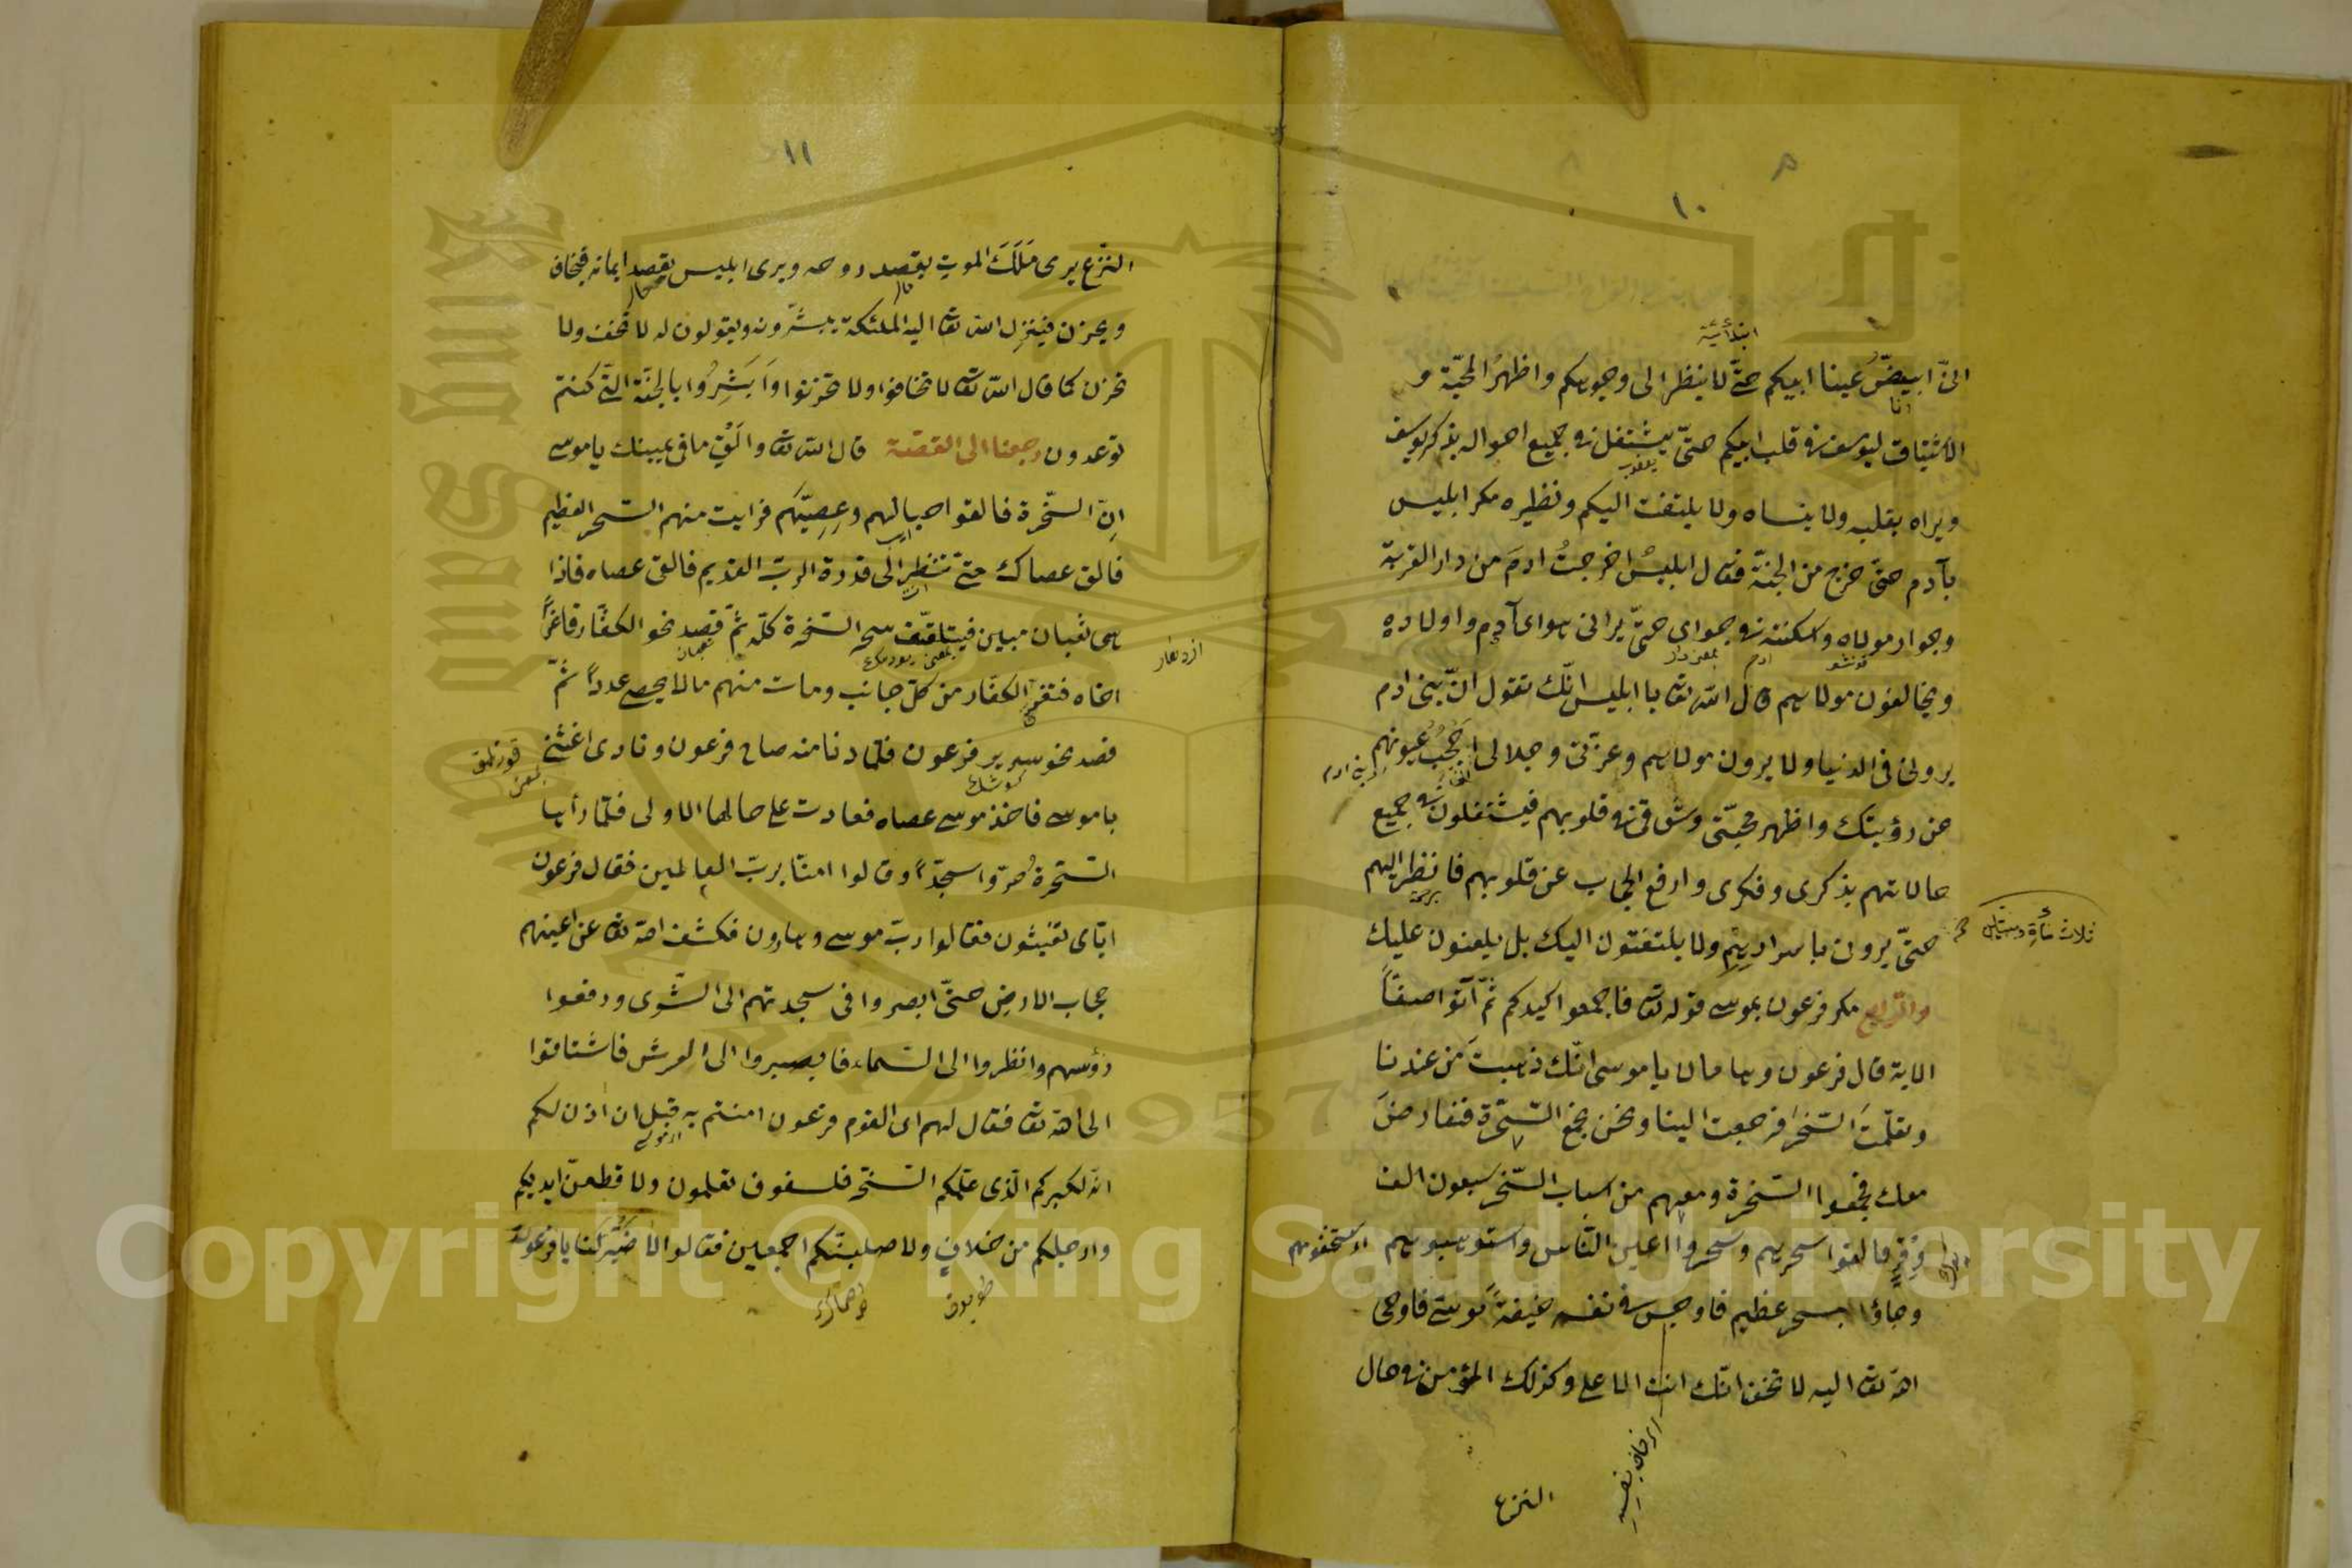 ١٠
ابتدائية
انّى ابيضّ عينا ابيكم حتّى لا ينظر الى وجوهكم واظهر المحبّة و
انا
الاشتياق ليوسف فى قلب ابيكم حتّى يشتغل فى جميع احواله بذكر يوسف
يعقوب
ويراه بقلبه ولا ينساه ولا يلتفت اليكم ونظيره مكر ابليس
بآدم حتّى خرج من الجنّة فقال ابليسُ اخرجتُ ادمَ من دار القربة
وجوار مولاه واسكنته فى جواى حتّى يرانى سواى آدم واولاده
ويخالفون مولاهم قال اللّه تعا يا ابليس انّك تقول انّ بنى ادم
يرونى فى الدنيا ولا يرون مولاهم وعزّتى وجلالى احجُبُ عيونهم
بنى ادم
عن رؤيتك واظهر محبّتى وشوقى فى قلوبهم فيشتغلون فى جميع
حالاتهم بذكرى وفكرى وارفع الحجاب عن قلوبهم فانظر اليهم
ثلاث مأة وستين
حتّى يرون باسرارهم ولا يلتفتون اليك بل يلعنون عليك
والرابع مكر فرعون بموسى قوله تعا فاجمعوا كيدكم ثمّ آتوا صفّاً
الاية قال فرعون وهامان يا موسى انّك ذهبتَ من عندنا
وتعلّمت السّحر فرجعت الينا ونحن نجمع السّحرة فنعارض
معك فجمعوا السّحرة ومعهم من اسباب السّحر سبعون الف
وقر فالقوا سحرهم وسحروا اعين النّاس واسترهبوهم
وجاؤا بسحر عظيم فاوجس فى نفسه خيفةً موسى فاوحى
اللّه تعا اليه لا تخف انّك انت الاعلى وكذلك المؤمن فى حال
النزع
١١
النزع يرى مَلَكَ الموت يقصد روحه ويرى ابليس يقصد ايمانه فيخاف
ويحزن فينزل اللّه تعا اليه الملئكة يبشّرونه ويقولون له لا تخف ولا
تحزن كما قال اللّه تعا لا تخافوا ولا تحزنوا وَاَبْشِرُوا بالجنّة التّى كنتم
توعدون رجعنا الى القصّة قال اللّه تعا والَقِ ما فى يمينك يا موسى
اِنّ السّحرة فالقوا حبالهم وعِصِيّهم فرايت منهم السّحر العظيم
فالق عصاك حتّى تنظر الى قدرة الربّ القديم فالقى عصاه فاذا
هى ثعبان مبين فيتلقّف سحر السّحرة كلّه ثمّ قصد نحو الكفّار فاغراً
ثعبان
اژدهار
اخاه فتفرّ الكفّار من كلّ جانب ومات منهم ما لا يحصى عدداً ثمّ
قصد نحو سرير فرعون فلمّا دنا منه صاح فرعون ونادى اغثنى
يا موسى فاخذ موسى عصاه فعادت على حالها الاولى فلمّا رأيها
السّحرة خرّوا سجّداً وقالوا امنّا بربّ العالمين فقال فرعون
ايّاى تغيثون فقالوا ربّ موسى وهارون فكشف اللّه تعا عن اعينهم
حجاب الارض حتّى ابصروا فى سجدتهم الى الثّرى ورفعوا
رؤسهم وانظروا الى السّماء فابصروا الى العرش فاشتاقوا
الى اللّه تعا فقال لهم اى القوم فرعون امنتم به قبل ان اذن لكم
انّه لكبيركم الّذى علّمكم السّحر فلسوف تعلمون ولاقطعنّ ايديكم
وارجلكم من خلاف ولاصلبنّكم اجمعين فقالوا لا ضير لنا يا فرعون
Copyright © King Saud University
1957